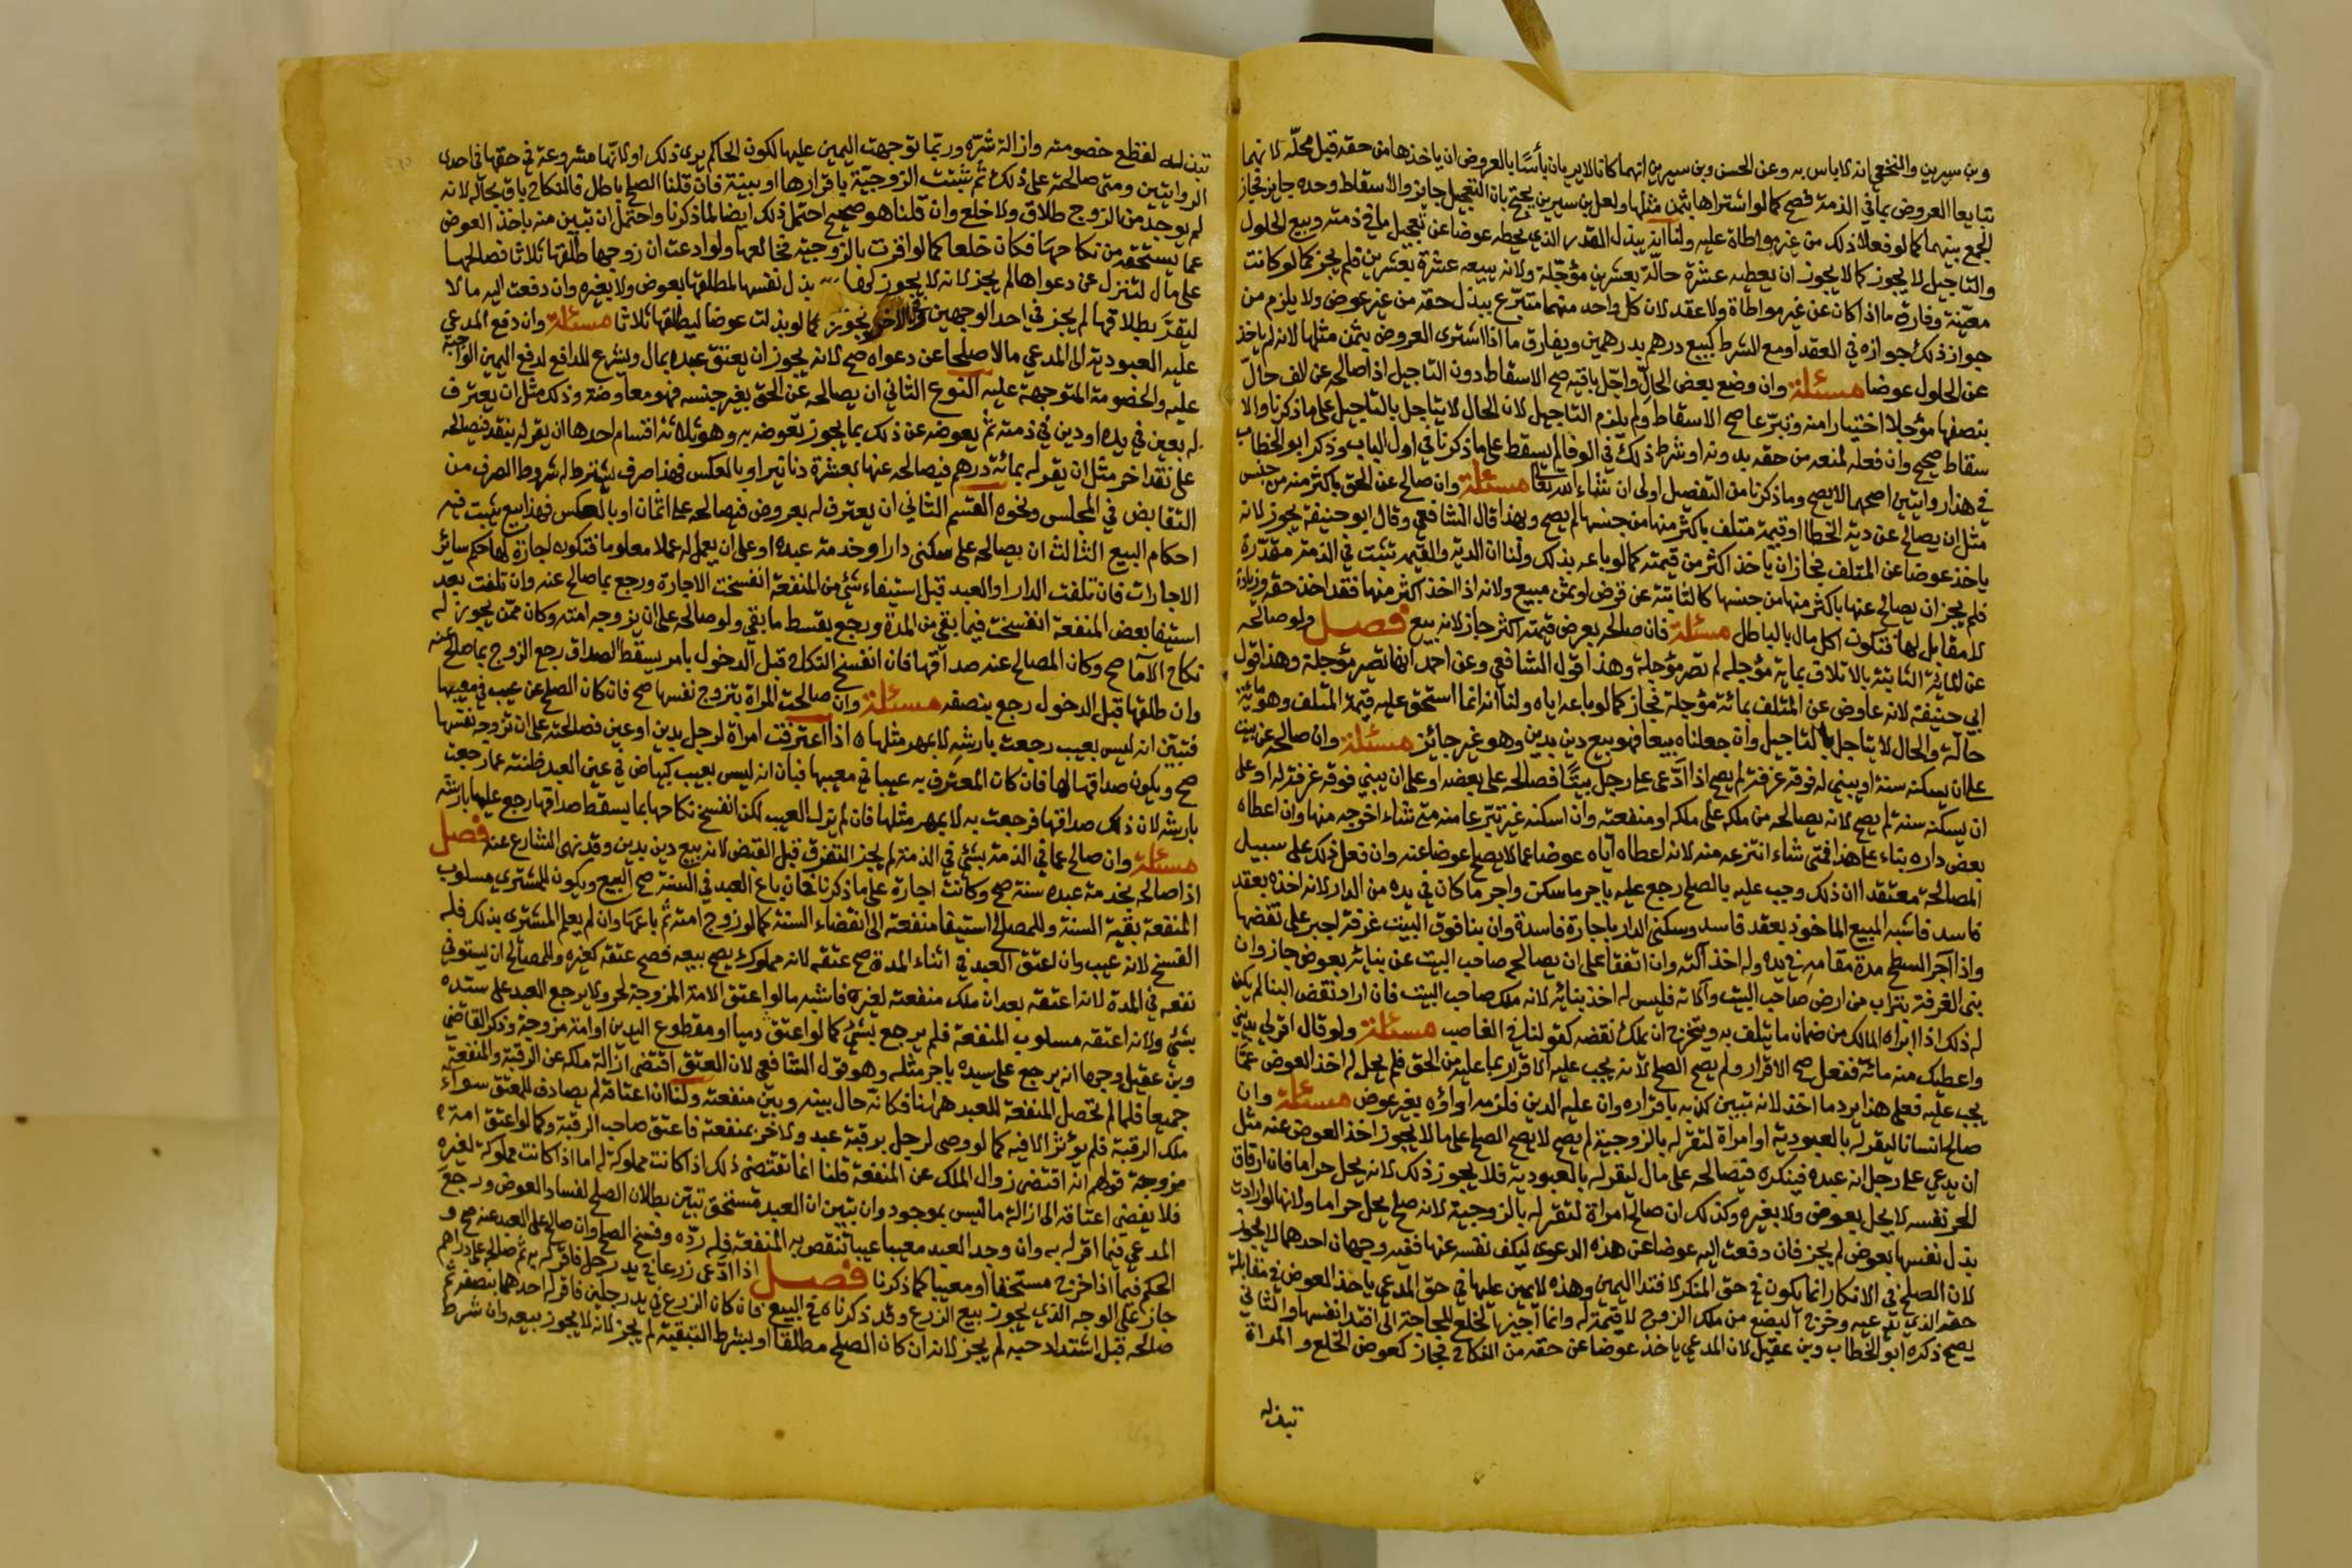 وبن سيرين والنخعي انه لا باس به وعن الحسن وبن سيرين انهما كانا لا يريان بأسًا بالعروض ان ياخذها من حقه قبل محلّه لانهما
تبايعا العروض بما في الذمة فصح كما لو اشتراها بثمن مثلها ولعل بن سيرين يحتج بان التعجيل جايز والاسقاط وحده جايز فجاز
الجمع بينهما كما لو فعلا ذلك من غير مواطاة عليه ولنا انه يبذل القدر الذي يحطه عوضا عن تعجيل ما في ذمته وبيع الحلول
والتاجيل لا يجوز كما لا يجوز ان يعطيه عشرة حالّة بعشرين مؤجّلة ولانه يبيعه عشرة بعشرين فلم يجز كما لو كانت
معيّنة وفارق ما اذا كان عن غير مواطاة ولا عقد لان كل واحد منهما متبرّع ببذل حقه من غير عوض ولا يلزم من
جواز ذلك جوازه في العقد او مع الشرط كبيع درهم بدرهمين ويفارق ما اذا اشترى العروض بثمن مثلها لانه لم ياخذ
عن الحلول عوضا مسئلة وان وضع بعض الحالّ واجّل باقيه صح الاسقاط دون التاجيل اذا صالحه عن الف حالّ
بنصفها مؤجلا اختيارا منه وتبرّعا صح الاسقاط ولم يلزم التاجيل لان الحال لا يتاجل بالتاجيل على ما ذكرنا والا
سقاط صحيح وان فعله لمنعه من حقه بدونه او شرط ذلك في الوفا لم يسقط على ما ذكرنا في اول الباب وذكر ابو الخطاب
في هذا روايتين اصحهما لا يصح وما ذكرنا من التفصيل اولى ان شاء الله تعا مسئلة وان صالح عن الحق باكثر منه من جنسه
مثل ان يصالح عن دية الخطا او قيمة متلف باكثر منها من جنسها لم يصح وبهذا قال الشافعي وقال ابو حنيفة يجوز لانه
ياخذ عوضا عن المتلف فجاز ان ياخذ اكثر من قيمته كما لو باعه بذلك ولنا ان الدية والقيمة تثبت في الذمة مقدّرة
فلم يجز ان يصالح عنها باكثر منها من جنسها كالثابتة عن قرض او ثمن مبيع ولانه اذا اخذ اكثر منها فقد اخذ حقه وزيادة
لا مقابل لها فتكون اكل مال بالباطل مسئلة فان صالحه بعرض قيمته اكثر جاز لانه بيع فصل ولو صالحه
عن المائة الثابتة بالاتلاف بماية مؤجله لم تصر مؤجلة وهذا قول الشافعي وعن احمد انها تصير مؤجلة وهذا قول
ابي حنيفة لانه عاوض عن المتلف بمائة مؤجلة فجاز كما لو باعه اياه ولنا انه انما استحق عليه قيمة المتلف وهو مائة
حالّة والحال لا يتاجل بالتاجيل وان جعلناه بيعا فهو بيع دين بدين وهو غير جائز مسئلة وان صالحه عن بيت
على ان يسكنه سنة او يبني له فوقه غرفة لم يصح اذا ادّعى على رجل بيتًا فصالحه على بعضه او على ان يبني فوقه غرفة له او على
ان يسكنه سنة لم يصح لانه يصالحه من ملكه على ملكه او منفعته وان اسكنه غير تبرّعا منه متى شاء اخرجه منها وان اعطاه
بعض داره بناء على هذا فمتى شاء انتزعه منه لانه اعطاه اياه عوضا عما لا يصلح عوضا عنه وان فعل ذلك على سبيل
المصالحة معتقدا ان ذلك وجب عليه بالصلح رجع عليه باجر ما سكن واجر ما كان في يده من الدار لانه اخذه بعقد
فاسد فاشبه المبيع الماخوذ بعقد فاسد وسكنى الدار باجارة فاسدة وان بنا فوق البيت غرفة اجبر على نقضها
واذا آجر السطح مدة مقامه في يده وله اخذ آلته وان اتفقا على ان يصالحه صاحب البيت عن بنائه بعوض جاز وان
بنى الغرفة بتراب من ارض صاحب البيت وآلاته فليس له اخذ بنائه لانه ملك صاحب البيت فان اراد نقض البنا لم يكن
له ذلك اذا ابراه المالك من ضمان ما يتلف به ويتخرج ان يملك نقضه كقولنا في الغاصب مسئلة ولو قال اقر لي بديني
واعطيك منه مائة ففعل صح الاقرار ولم يصح الصلح لانه يجب عليه الاقرار بما عليه من الحق فلم يحل له اخذ العوض عمّا
يجب عليه فعلى هذا يرد ما اخذ لانه تبين كذبه باقراره وان عليه الدين فلزمه اداؤه بغير عوض مسئلة وان
صالح انسانا ليقر له بالعبودية او امراة لتقر له بالزوجية لم يصح لا يصح الصلح على ما لا يجوز اخذ العوض عنه مثل
ان يدعي على رجل انه عبده فينكره فيصالحه على مال ليقر له بالعبودية فلا يجوز ذلك لانه يحل حراما فان ارقاق
الحر نفسه لا يحل بعوض ولا بغيره وكذلك ان صالح امراة لتقر له بالزوجية لانه صلح يحل حراما ولانها لو ارادت
بذل نفسها بعوض لم يجز فان دفعت اليه عوضا عن هذه الدعوى ليكف نفسه عنها ففيه وجهان احدهما لا يجوز
لان الصلح في الانكار انما يكون في حق المنكر لافتدا اليمين وهذه لا يمين عليها في حق المدعي ياخذ العوض في مقابلة
حقه الذي يدّعيه وخروج البضع من ملك الزوج لا قيمة له وانما اجيز الخلع للحاجة الى افتدا نفسها والثاني
يصح ذكره ابو الخطاب وبن عقيل لان المدعي ياخذ عوضا عن حقه من النكاح فجاز كعوض الخلع والمراة
تبذله
تبذله لقطع خصومته وازالة شرّه وربّما توجهت اليمين عليها لكون الحاكم يرى ذلك او لانّها مشروعة في حقها في احدى
الروايتين ومتى صالحته على ذلك ثم ثبتت الزوجيّة باقرارها او ببينة فان قلنا الصلح باطل فالنكاح باق بحاله لانه
لم يوجد من الزوج طلاق ولا خلع وان قلنا هو صحيح احتمل ذلك ايضا لما ذكرنا واحتمل ان تبين منه باخذ العوض
عما يستحقه من نكاحها فكان خلعا كما لو اقرت بالزوجية فخالعها ولو ادعت ان زوجها طلقها ثلاثا فصالحها
على مال لتنزل عن دعواها لم يجز لانه لا يجوز لها بذل نفسها لمطلقها بعوض ولا بغيره وان دفعت اليه مالا
ليقرّ بطلاقها لم يجز في احد الوجهين وفي الاخر يجوز كما لو بذلت عوضا ليطلقها ثلاثا مسئلة وان دفع المدعي
عليه العبودية الى المدعي مالا صلحا عن دعواه صح لانه يجوز ان يعتق عبده بمال ويشرع للدافع لدفع اليمين الواجبة
عليه والخصومة المتوجهة عليه النوع الثاني ان يصالحه عن الحق بغير جنسه فهو معاوضة وذلك مثل ان يعترف
له بعين في يده او دين في ذمته ثم يعوضه عن ذلك بما يجوز تعوضه به وهو ثلاثة اقسام احدها ان يقر له بنقد فيصالحه
على نقد اخر مثل ان يقر له بمائة درهم فيصالحه عنها بعشرة دنانير او بالعكس فهذا صرف يشترط له شروط الصرف من
التقابض في المجلس ونحوه القسم الثاني ان يعترف له بعروض فيصالحه على اثمان او بالعكس فهذا بيع يثبت فيه
احكام البيع الثالث ان يصالحه على سكنى دار او خدمة عبده او على ان يعمل له عملا معلوما فتكون اجارة لها حكم سائر
الاجارات فان تلفت الدار او العبد قبل استيفاء شئ من المنفعة انفسخت الاجارة ورجع بما صالح عنه وان تلفت بعد
استيفا بعض المنفعة انفسخت فيما بقي من المدة ورجع بقسط ما بقي ولو صالحه على ان يزوجه امته وكان ممّن يجوز له
نكاح الاما صح وكان المصالح عنه صداقها فان انفسخ النكاح قبل الدخول بامر يسقط الصداق رجع الزوج بما صالح عنه
وان طلقها قبل الدخول رجع بنصفه مسئلة وان صالحت المراة بتزوج نفسها صح فان كان الصلح عن عيب في مبيعها
فتبيّن انه ليس بعيب رجعت بارشه لا بمهر مثلها اذا اعترفت امراة لرجل بدين او عين فصالحته على ان تزوجه نفسها
صح ويكون صداقها لها فان كان المعترف به عيبا في مبيعها فبان انه ليس بعيب كبياض في عين العبد ظنته عما رجعت
بارشه لان ذلك صداقها فرجعت به لا بمهر مثلها فان لم يزل العيب لكن انفسخ نكاحها بما يسقط صداقها رجع عليها بارشه
مسئلة وان صالح عما في الذمة بشئ في الذمة لم يجز التفرق قبل القبض لانه بيع دين بدين وقد نهى الشارع عنه فصل
اذا صالحه بخدمة عبده سنة صح وكانت اجارة على ما ذكرنا فان باع العبد في السنة صح البيع ويكون للمشتري مسلوب
المنفعة بقية السنة وللمصالح استيفا منفعته الى انقضاء السنة كما لو زوج امته ثم باعها وان لم يعلم المشتري بذلك فله
الفسخ لانه عيب وان اعتق العبد في اثناء المدة صح عتقه لانه مملوك يصح بيعه فصح عتقه كغيره وللمصالح ان يستوفي
نفعه في المدة لانه اعتقه بعد ان ملك منفعته لغيره فاشبه ما لو اعتق الامة المزوجة لحر ولا يرجع العبد على سيده
بشئ ولانه اعتقه مسلوب المنفعة فلم يرجع بشئ كما لو اعتق زمنا او مقطوع اليدين او امة مزوجة وذكر القاضي
وبن عقيل وجها انه يرجع على سيده باجر مثله وهو قول الشافعي لان العتق اقتضى ازالة ملكه عن الرقبة والمنفعة
جميعا فلما لم تحصل المنفعة للعبد ههنا فكانّه حال بينه وبين منفعته ولنا ان اعتاقه لم يصادف للمعتق سوآء
ملك الرقبة فلم يؤثر الا فيه كما لو وصى لرجل برقبة عبد ولاخر بمنفعته فاعتق صاحب الرقبة وكما لو اعتق امة
مزوجة قولهم انه اقتضى زوال الملك عن المنفعة قلنا انما تقتضي ذلك اذا كانت مملوكة له اما اذا كانت مملوكة لغيره
فلا يفضي اعتاقه الى ازالة ما ليس بموجود وان تبين ان العبد مستحق تبيّن بطلان الصلح لفساد العوض ورجع
المدعي فيما اقر له به وان وجد العبد معيبا عيبا تنقص به المنفعة فله ردّه وفسخ الصلح وان صالح على العبد عنه صح و
الحكم فيما اذا خرج مستحقا او معيبا كما ذكرنا فصل اذا ادّعى زرعا في يد رجل فاقر له به ثم صالحه على دراهم
جاز على الوجه الذي يجوز بيع الزرع وقد ذكرناه في البيع فان كان الزرع في يد رجلين فاقر له احدهما بنصفه ثم
صالحه قبل اشتداد حبه لم يجز لانه ان كان الصلح مطلقا او بشرط التبقية لم يجز لانه لا يجوز بيعه وان شرط